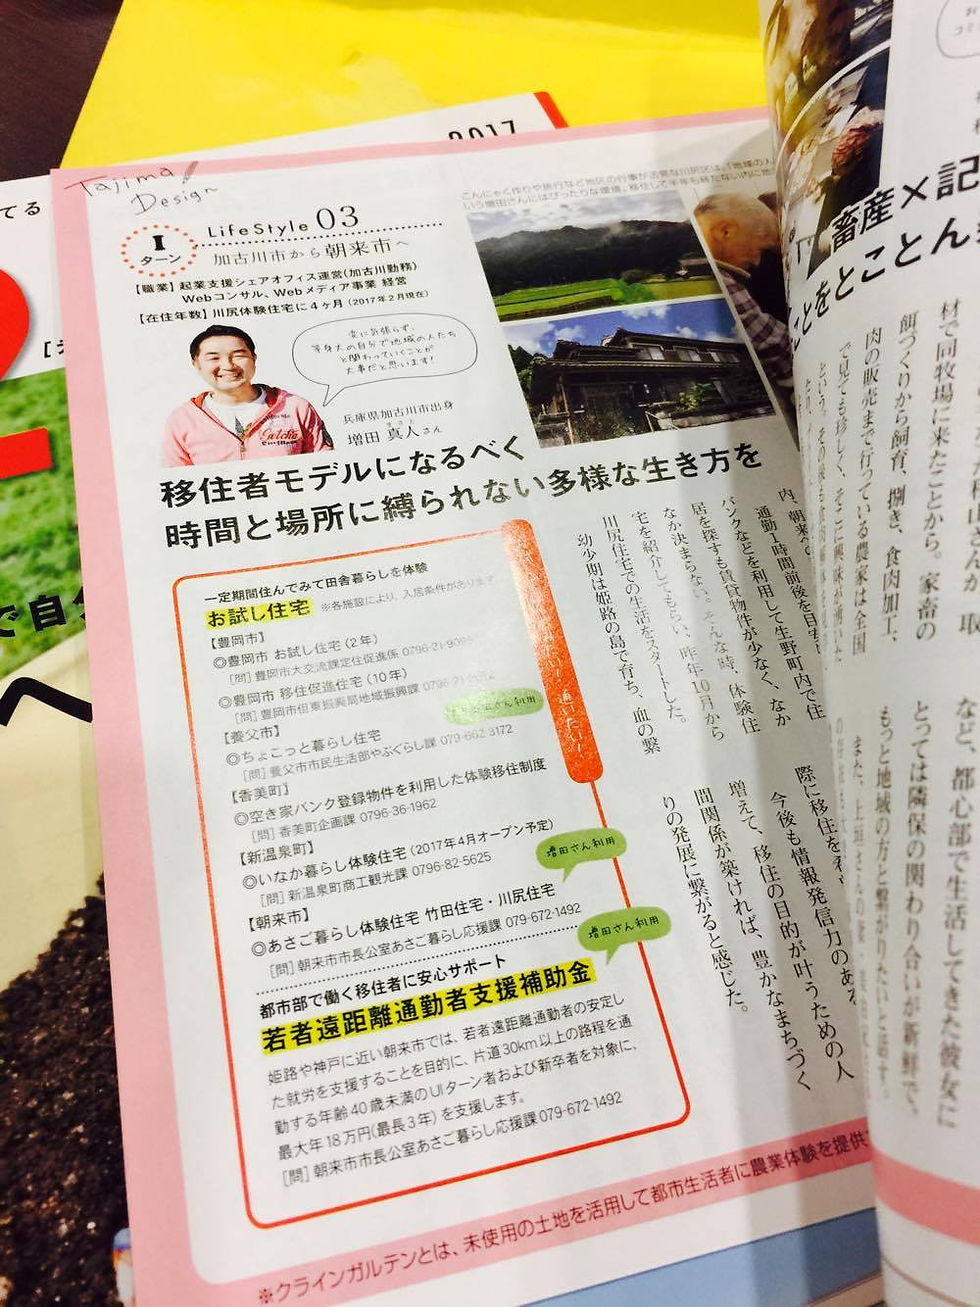 2017
Tajima
Design
Iターン
LifeStyle 03
加古川市から朝来市へ
【職業】起業支援シェアオフィス運営(加古川勤務)
Webコンサル、Webメディア事業 経営
【在住年数】川尻体験住宅に4ヶ月(2017年2月現在)
変に気張らず、
等身大の自分で地域の人たち
と関わっていくことが
大事だと思います!
兵庫県加古川市出身
増田 真人さん
移住者モデルになるべく
時間と場所に縛られない多様な生き方を
一定期間住んでみて田舎暮らしを体験
お試し住宅 ※各施設により、入居条件があります
【豊岡市】
◎豊岡市 お試し住宅(2年)
[問]豊岡市大交流課定住促進係
◎豊岡市 移住促進住宅(10年)
[問]豊岡市但東振興局地域振興課
【養父市】
◎ちょこっと暮らし住宅
[問]養父市市民生活部やぶぐらし課 079-662-3172
【香美町】
◎空き家バンク登録物件を利用した体験移住制度
[問]香美町企画課 0796-36-1962
【新温泉町】
◎いなか暮らし体験住宅(2017年4月オープン予定)
[問]新温泉町商工観光課 0796-82-5625
増田さん利用
【朝来市】
◎あさご暮らし体験住宅 竹田住宅・川尻住宅
[問]朝来市市長公室あさご暮らし応援課 079-672-1492
増田さん利用
都市部で働く移住者に安心サポート
若者遠距離通勤者支援補助金
姫路や神戸に近い朝来市では、若者遠距離通勤者の安定し
た就労を支援することを目的に、片道30km以上の路程を通
勤する年齢40歳未満のUIターン者および新卒者を対象に、
最大年18万円(最長3年)を支援します。
[問]朝来市市長公室あさご暮らし応援課 079-672-1492
通勤1時間前後を目安に
バンクなどを利用して生野町内で住
居を探すも賃貸物件が少なく、なか
なか決まらない。そんな時、体験住
宅を紹介してもらい、昨年10月から
川尻住宅での生活をスタートした。
幼少期は姫路の島で育ち、血の繋
際に移住を
今後も情報発信力のある
増えて、移住の目的が叶うための人
間関係が築ければ、豊かなまちづく
りの発展に繋がると感じた。
※クラインガルテンとは、未使用の土地を活用して都市生活者に農業体験を提供
畜産×記
ことをとことん
材で同牧場に来たことから。家畜の
餌づくりから飼育、捌き、食肉加工、
肉の販売まで行っている農家は全国
で見ても珍しく、そこに興味が
など、都心部で生活してきた彼女に
とっては隣保の関わり合いが新鮮で、
もっと地域の方と繋がりたいと話す。
また、上垣さんの